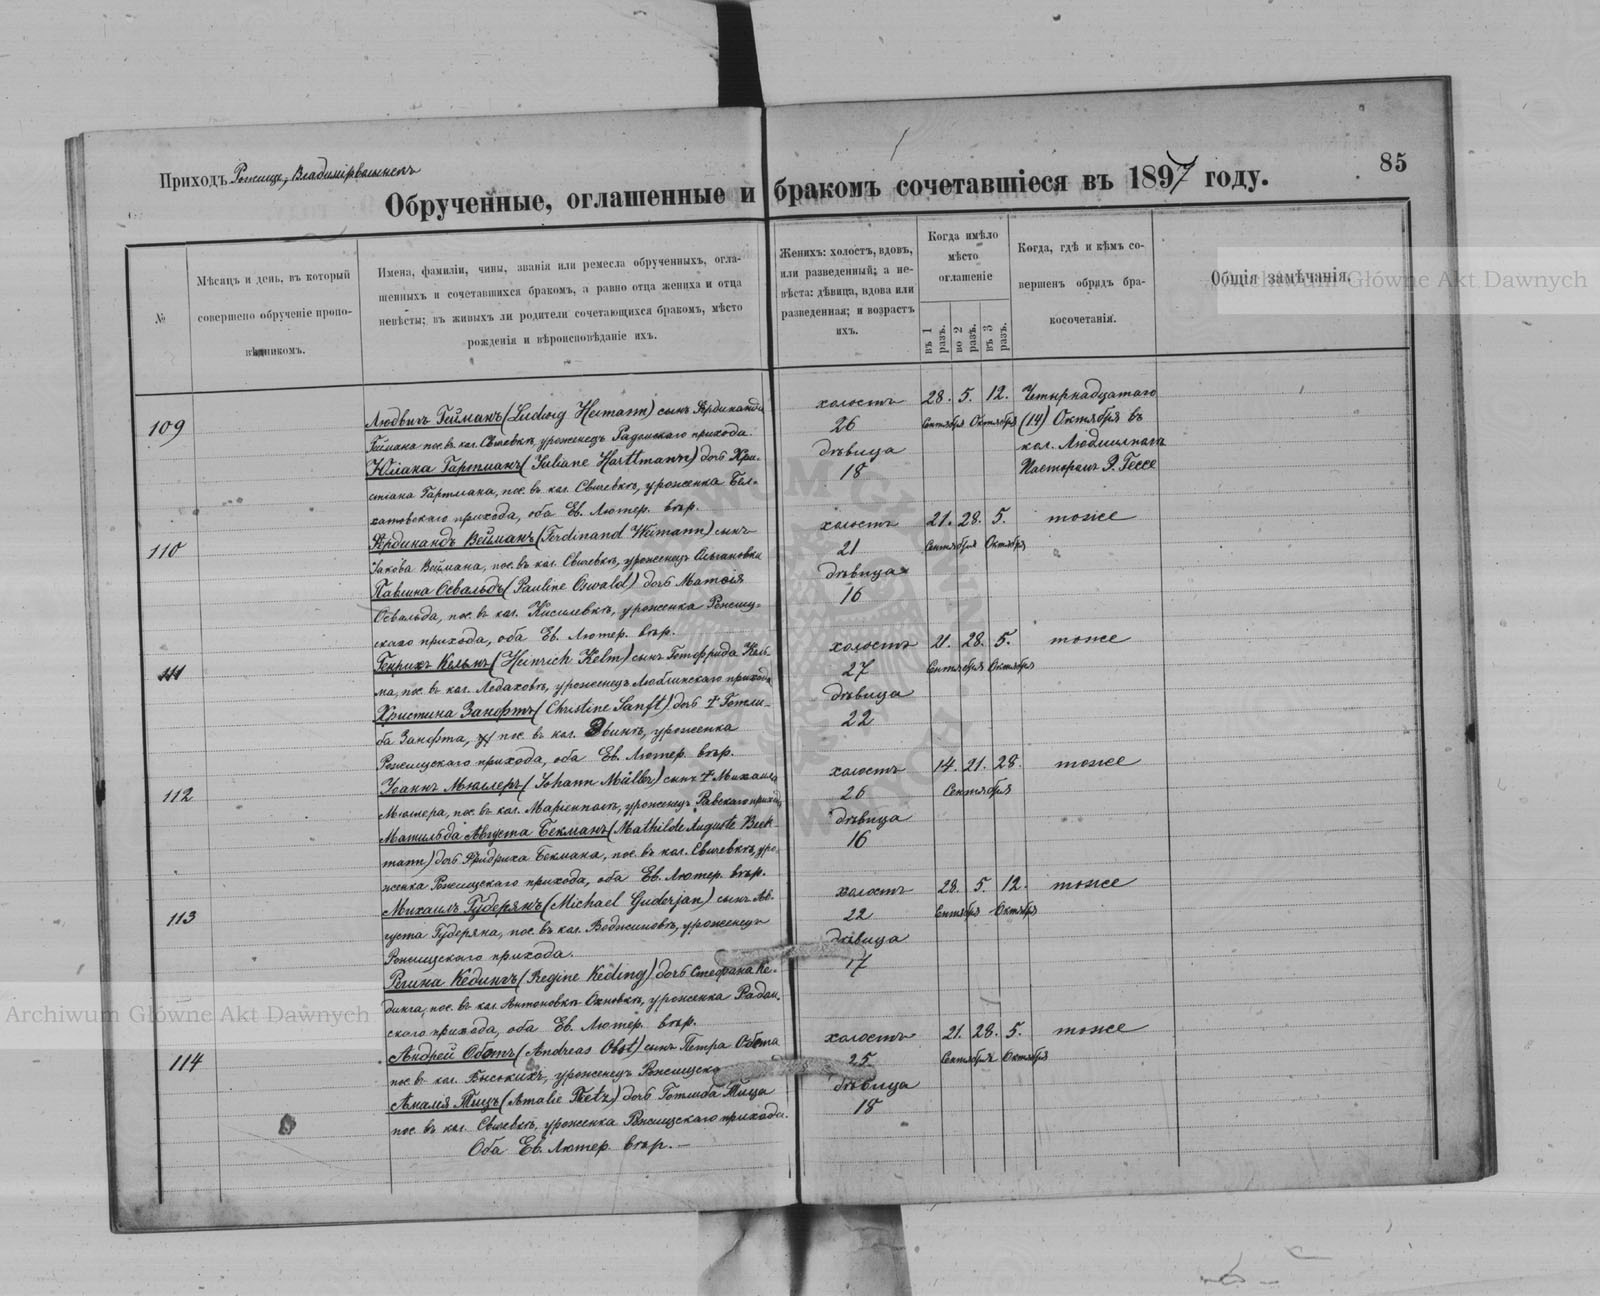 85
Приходъ Рожище, Владимірволынскъ
Обрученные, оглашенные и бракомъ сочетавшіеся въ 1897 году.
№
Мѣсяцъ и день, въ который
совершено обрученіе пропо-
вѣдникомъ.
Имена, фамиліи, чины, званія или ремесла обрученныхъ, огла-
шенныхъ и сочетавшихся бракомъ, а равно отца жениха и отца
невѣсты; въ живыхъ ли родители сочетающихся бракомъ, мѣсто
рожденія и вѣроисповѣданіе ихъ.
Женихъ: холостъ, вдовъ,
или разведенный; а не-
вѣста: дѣвица, вдова или
разведенная; и возрастъ
ихъ.
Когда имѣло
мѣсто
оглашеніе
въ 1 разъ.
во 2 разъ.
въ 3 разъ.
Когда, гдѣ и кѣмъ со-
вершенъ обрядъ бра-
косочетанія.
Общія замѣчанія.
109
Людвигъ Гейманъ (Ludwig Heimann) сынъ Фердинанда
Геймана пос. въ кол. Свичевкѣ, уроженецъ Радомскаго прихода.
Юліана Гартманъ (Juliane Harttmann) дочь Хри-
стіана Гартмана, пос. въ кол. Свичевкѣ, уроженка Бел-
хатовскаго прихода, оба Ев. Лютер. вѣр.
холостъ
26
дѣвица
18
28. 5. 12.
Сентября Октября
Четырнадцатаго
(14) Октября въ
кол. Людмилполъ
Пасторомъ Р. Гессе
110
Фердинандъ Вейманъ (Ferdinand Weimann) сынъ
Іакова Веймана, пос. въ кол. Свичевкѣ, уроженецъ Ольгановки
Павлина Освальдъ (Pauline Oswald) дочь Матвія
Освальда, пос. въ кол. Киселевкѣ, уроженка Рожищ-
скаго прихода, оба Ев. Лютер. вѣр.
холостъ
21
дѣвица
16
21. 28. 5.
Сентября Октября
тоже
111
Генрихъ Кельмъ (Heinrich Kelm) сынъ Готфрида Кель-
ма, пос. въ кол. Ледаховкѣ, уроженецъ Люблинскаго прихода
Христина Занфтъ (Christine Sanft) дочь † Готли-
ба Занфта, пос. въ кол. уроженка
Рожищскаго прихода, оба Ев. Лютер. вѣр.
холостъ
27
дѣвица
22
21. 28. 5.
Сентября Октября
тоже
112
Іоаннъ Мюллеръ (Johann Müller) сынъ † Михаила
Мюллера, пос. въ кол. Маріенполъ, уроженецъ Равскаго прихода
Матильда Августа Бекманъ (Mathilde Auguste Beck-
mann) дочь Фридриха Бекмана, пос. въ кол. Свичевкѣ, уро-
женка Рожищскаго прихода, оба Ев. Лютер. вѣр.
холостъ
26
дѣвица
16
14. 21. 28.
Сентября
тоже
113
Михаилъ Гудерянъ (Michael Guderjan) сынъ Ав-
густа Гудеряна, пос. въ кол. Воджиновкѣ, уроженецъ
Рожищскаго прихода.
Регина Кедингъ (Regine Keding) дочь Стефана Ке-
динга, пос. въ кол. Антоновкѣ уроженка Радом-
скаго прихода, оба Ев. Лютер. вѣр.
холостъ
22
дѣвица
17
28. 5. 12.
Сентября Октября
тоже
114
Андрей Обстъ (Andreas Obst) сынъ Петра Обста
пос. въ кол. уроженецъ Рожищско
Амалія Тицъ (Amalie Tietz) дочь Готлиба Тица
пос. въ кол. Свичевкѣ, уроженка Рожищскаго прихода.
Оба Ев. Лютер. вѣр.
холостъ
25
дѣвица
18
21. 28. 5.
Сентября Октября
тоже
Archiwum Główne Akt Dawnych
Archiwum Główne Akt Dawnych